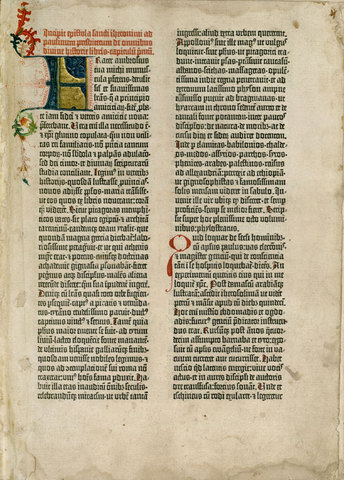 Incipit epistola sancti iheronimi ad
paulinum presbiterum de omnibus
divine historie libris. capitulū primū.
Frater ambrosius
tua michi munuscula
perferens. detulit
sił et suavissimas
lrās. q̄ a principio
amicitiarū. fidē ꝓba
te iam fidei et veteris amicicie noua
ꝑferebant. Vera enī illa necessitudo ē.
et xp̄i glutino copulata. qm̄ non utilitas
rei familiaris. nō pn̄tia tantum
corporꝫ. nō sbdola et palpās adulacō.
sed dei timor. et diuinarū scripturarū
studia conciliant. Legim⁹ in veterib⁹
historijs. quosdā lustrasse ꝓuīcias.
nouos adijsse plos. maria trāsisse.
ut eos quos ex libris nouerant: coram
q̄ viderēt. Sicut pitagoras memphiticos
vates. sic plato egiptū. et architā
tarentinū. eandemq̄ oram ytalie. que
quondā magna grecia dicebat: laboriosissime
peragrauit. et ut qui athenis
mgr̄ erat. et potens. cuiusq̄ doctrinas
achademie gignasia ꝑsonabāt. fieret
peregrinus atq̄ discipulus. malens aliena
verecunde discere: q̄ȝ sua īpudent̄ ingerere.
Deniq̄ cū lrās quasi toto orbe fugientes
ꝑsequit̄. capt⁹ a piratis et venūdatus.
tyrāno crudelissimo paruit. duct⁹
captiuus vinct⁹ et seruus. Tamē quia
phus maior emente se fuit. ad tytum
liuiū. lacteo eloquētie fonte manantē.
de ultimis hispanie galliarūq̄ finibꝫ.
quosdam venisse nobiles legimus.
et quos ad contēplatōnē sui roma nō
traxerat: uni⁹ hoīs fama ꝑduxit. Habuit
illa etas inauditū omībꝫ seculis.
celebrandūq̄ miraculū. ut urbē tantā
ingressi: aliud extra urbem quererent.
Apolloni⁹ siue ille mag⁹ ut vulgus
loquitur. siue phus. ut pitagorici tradunt.
intrauit persas. ptrāsiuit caucasū.
albanos. scithas. massagetas. opulētissima
indie regna penetrauit. et ad
extremum latissimo physon amne
trāsmisso ꝑuenit ad bragmanas. ut
hyarcam in throno sedentē aureo et de
tantali fonte potantem. inter paucos
discipulos. de natura. de moribꝫ. ac de
cursu dierū et siderū audiret docentem.
Inde ꝑ elamitas. babilonios. chaldeos.
medos. assyrios. parthos. syros.
phenices. arabes. palestinos. reuersus
ad allexandriā: ꝑrexit ad ethiopiā.
ut gignosophistas et famosissimam
solis mensam videret in sabulo. Inuenit
ille vir ubiq̄ qd̄ disceret. et semp
proficiens. semp se melior fieret. Scripsit
super hoc plenissime octo voluminibus.
phylostratus.
Quid loquar de seculi hominibꝫ.
cū apłus paulus. vas electōnis.
et magister gentiū. qui de consciencia
tāti in se hospitis loquebat̄. dicēs. An
experimentū queritis eius qui in me
loquit̄ xp̄s. Post damascū arabiāq̄
lustratā: ascēdit iherosolimā ut vidēt
petrū et mansit apud eū diebꝫ quindeci.
Hoc enī misterio ebdomadis et ogdoadis:
futur⁹ gentiū p̄dicator instruendus
erat. Rursūq̄ post ānos q̄tuordecim
assumpto barnaba et tyto: exposuit
cū aplis euāgeliū. ne forte in vacuum
curreret aut cucurrisset. Habet
nescio qd̄ latentis energie. viue vocis
actus. et in aures discipli de auctoris
ore transfusa: forcius sonat. Unde et
eschineus cū rodi exularet. et legeretur